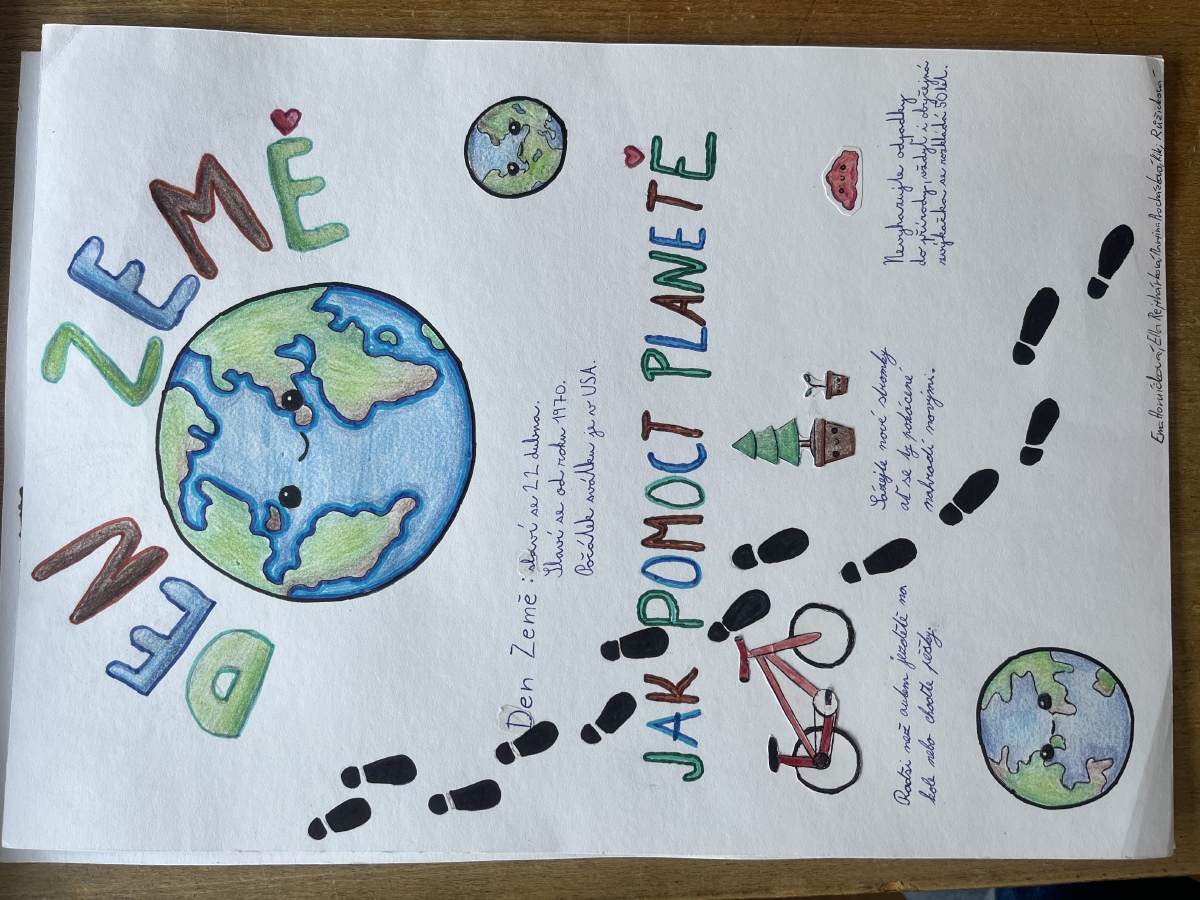 DEN ZEMĚ
Den Země: slaví se 22 dubna.
Slaví se od roku 1970.
Počátek svátku je v USA.
JAK POMOCT PLANETĚ
Radši než autem jezdětě na
kole nebo choďte pěšky.
Sázejte nové stromky
ať se ty pokácené
nahradí novými.
Nevyhazujte odpadky
do přírody, vždyť i obyčejná
žvýkačka se rozkládá 50 let.
Ema Horničková, Ella Rejthárková, Martina Procházková, Růžičková